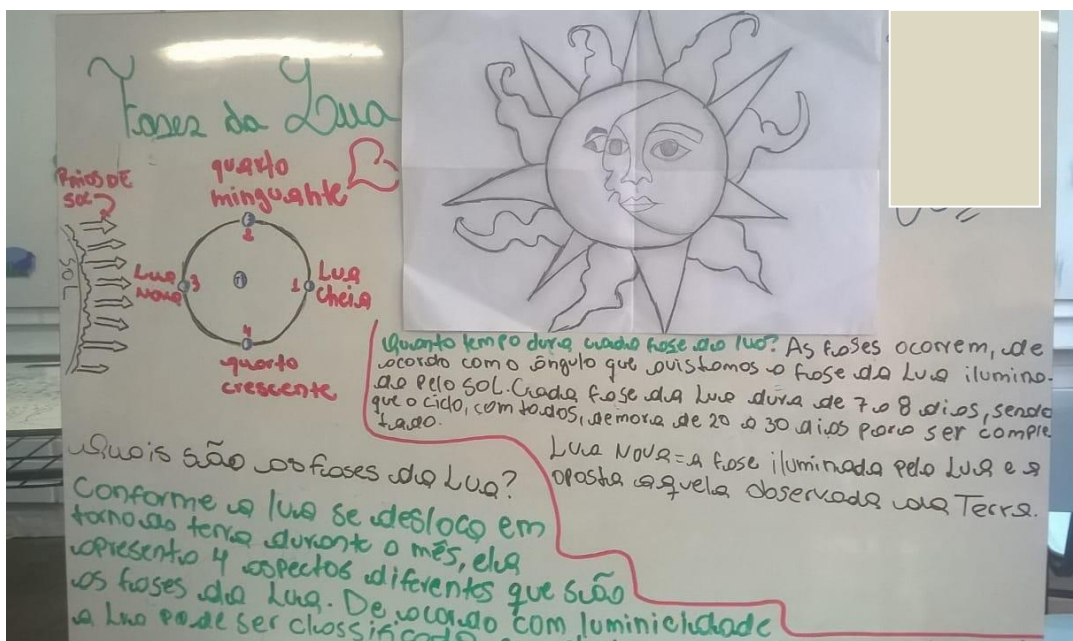 Fases da Lua
RAIOS DE
SOL
SOL
quarto
minguante
2
Lua
Nova
3
T
1
Lua
cheia
4
quarto
crescente
Quanto tempo dura cada fase da lua? As fases ocorrem, de
acordo com o ângulo que avistamos a fase da Lua ilumina-
da pelo SOL. Cada fase da Lua dura de 7 a 8 dias, sendo
que o ciclo, com todos, demora de 20 a 30 dias para ser comple
tado.
Lua Nova = a fase iluminada pela Lua e a
oposta aquela observada da Terra.
Quais são as fases da Lua?
Conforme a lua se desloca em
torno da terra durante o mês, ela
apresenta 4 aspectos diferentes que são
as fases da Lua. De acordo com luminichdade
a Lua pode ser classificada